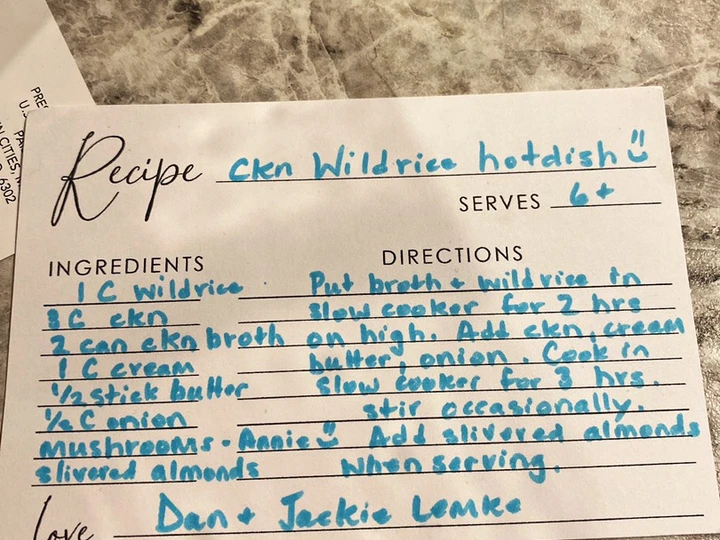 Recipe Ckn Wildrice hotdish
SERVES 6+
INGREDIENTS
1 C wildrice
3C ckn
2 can ckn broth
1 C cream
1/2 stick butter
1/2 C onion
Mushrooms - Annie
slivered almonds
DIRECTIONS
Put broth + wildrice in
slow cooker for 2 hrs
on high. Add ckn, cream
butter, onion. Cook in
slow cooker for 3 hrs.
stir occasionally.
Add slivered almonds
when serving.
Love Dan + Jackie Lemke
CITIES,
6302